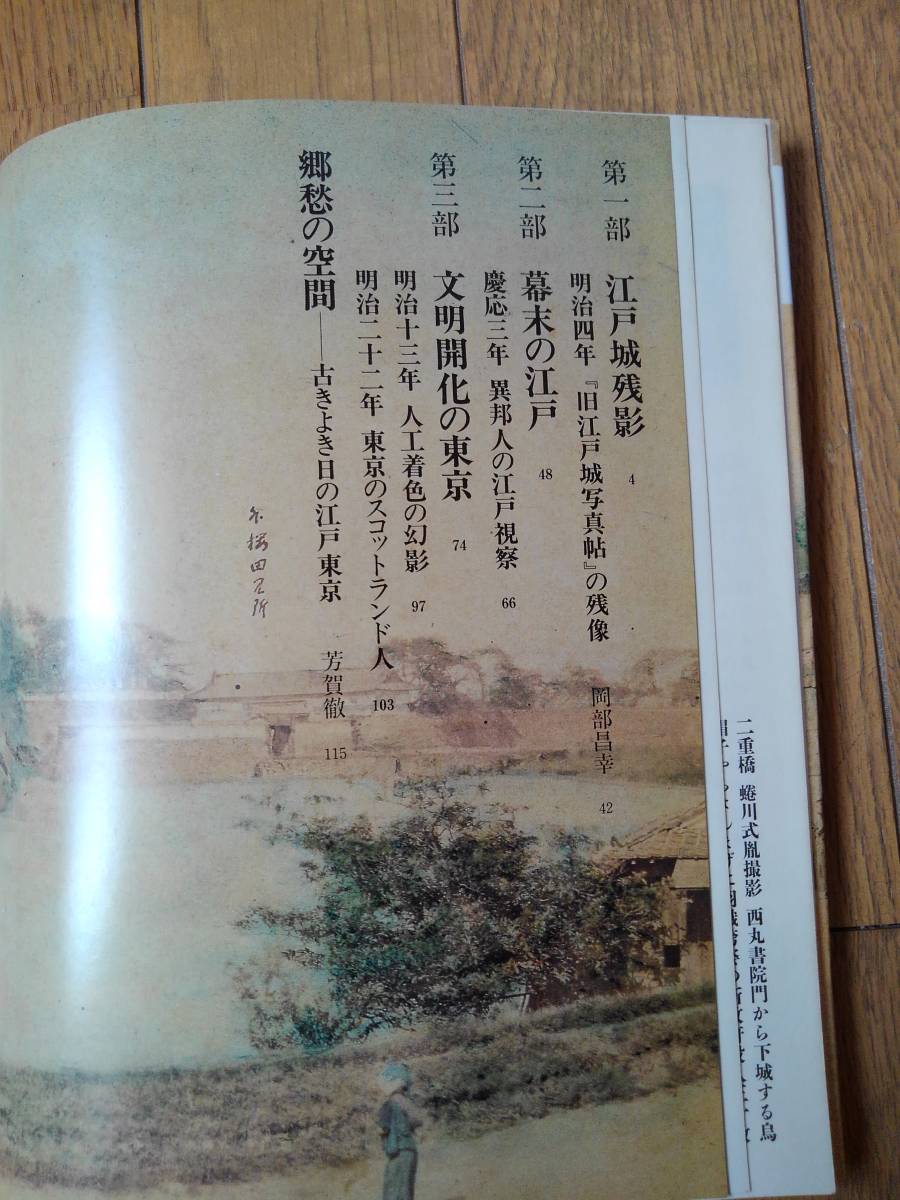 第一部 江戸城残影 4
明治四年『旧江戸城写真帖』の残像 岡部昌幸 42
第二部 幕末の江戸 48
慶応三年 異邦人の江戸視察 66
第三部 文明開化の東京 74
明治十三年 人工着色の幻影 97
明治二十二年 東京のスコットランド人 103
郷愁の空間──古きよき日の江戸東京 芳賀徹 115
二重橋 蜷川式胤撮影 西丸書院門から下城する烏